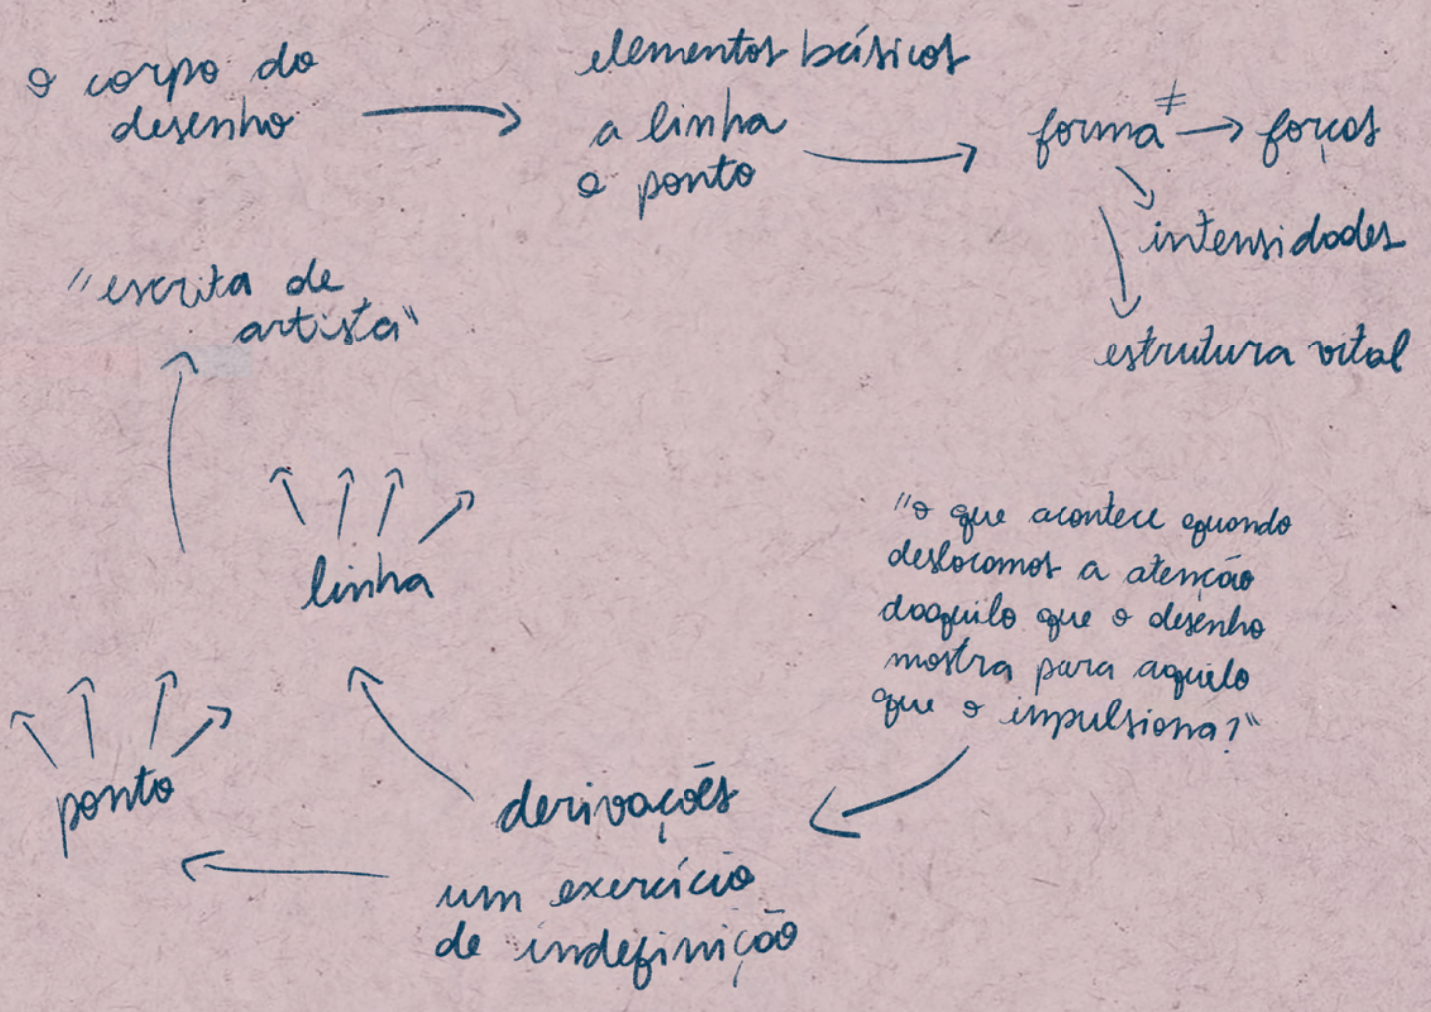 o corpo do
desenho
elementos básicos
a linha
o ponto
forma ≠ forças
intensidades
estrutura vital
"escrita de
artista"
linha
ponto
"o que acontece quando
deslocamos a atenção
daquilo que o desenho
mostra para aquilo
que o impulsiona?"
derivações
um exercício
de indefinição